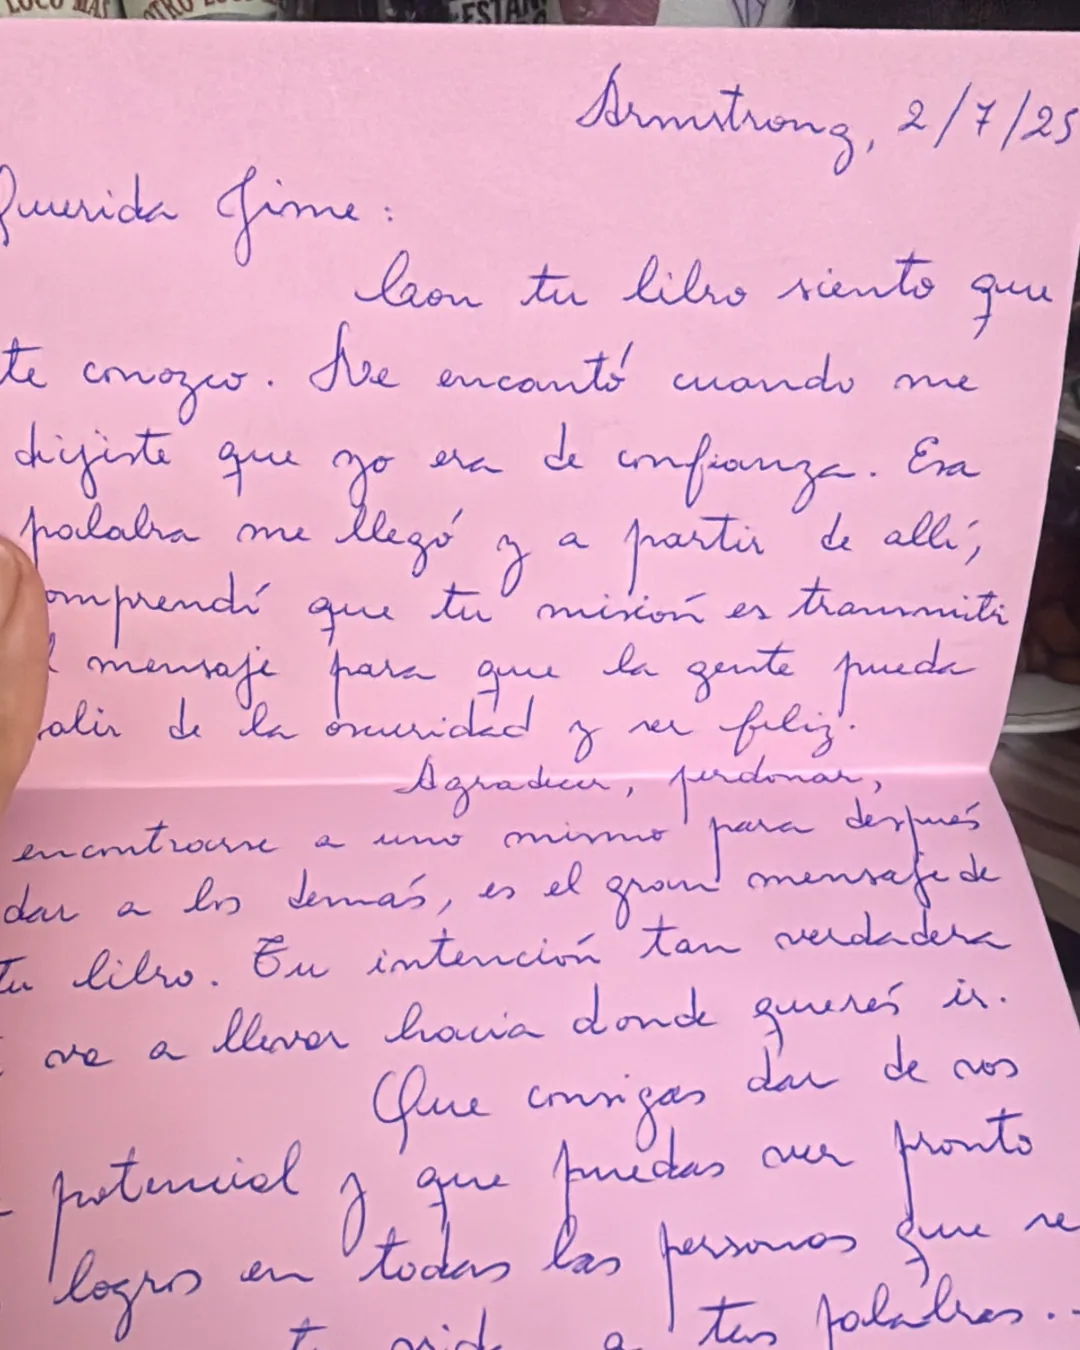 LOCO MÁS
OTRO LOCO
ESTAR
Armstrong, 2/7/25
Querida Jime:
Con tu libro siento que
te conozco. Me encantó cuando me
dijiste que yo era de confianza. Esa
palabra me llegó y a partir de allí,
omprendí que tu misión es transmiti
l mensaje para que la gente pueda
salir de la oscuridad y ser feliz.
Agradecer, perdonar,
encontrarse a uno mismo para después
dar a los demás, es el gran mensaje de
Tu libro. Tu intención tan verdadera
va a llevar hacia donde querés ir.
Que consigas dar de vos
potencial y que puedas ver pronto
logros en todas las personas que re
a tus palabras...